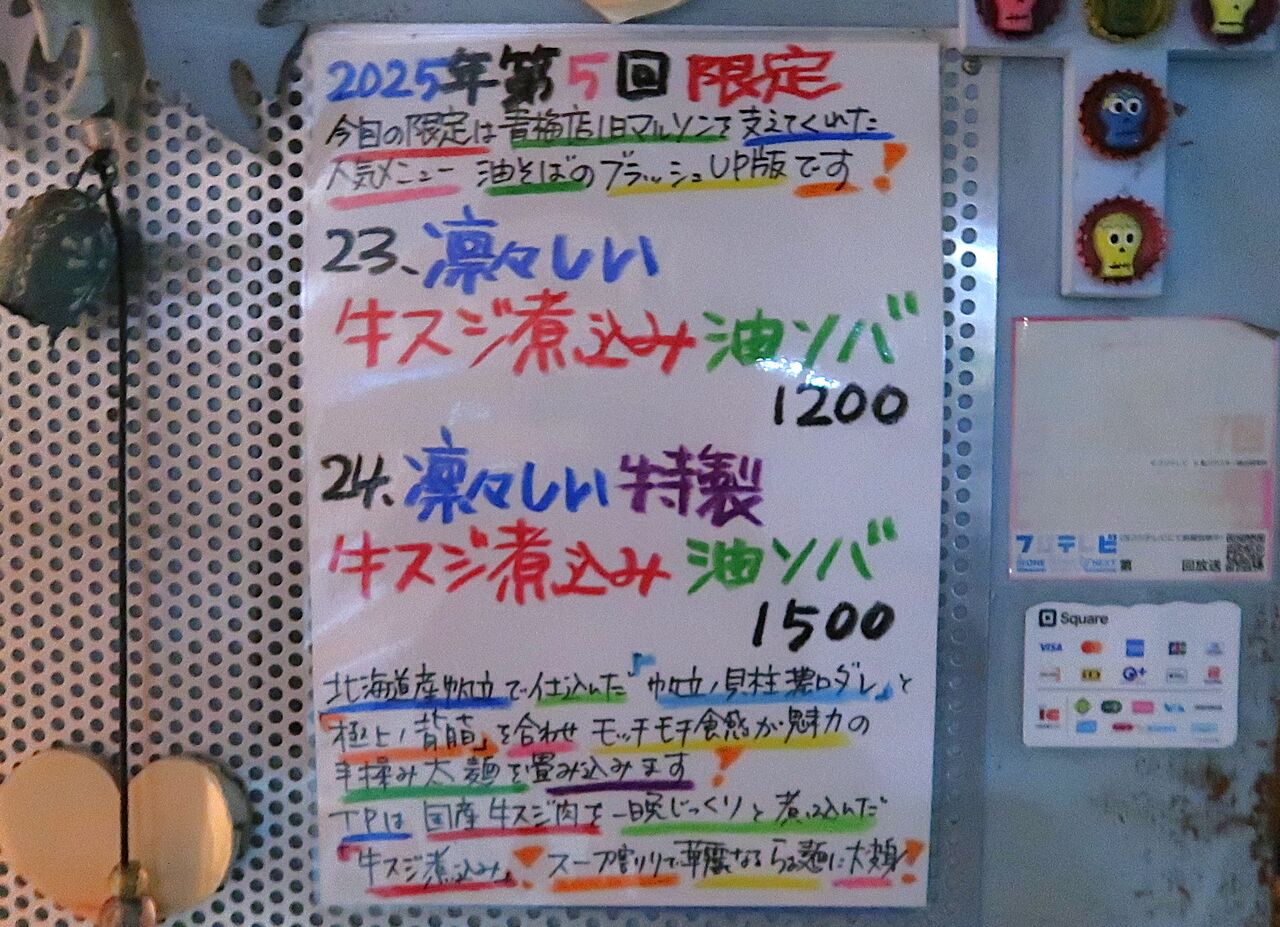 2025年第5回 限定
今回の限定は青梅店旧マルソンを支えてくれた
人気メニュー 油そばのブラッシュUP版です!
23、凛々しい
牛スジ煮込み油ソバ
1200
24、凛々しい特製
牛スジ煮込み油ソバ
1500
北海道産帆立で仕込んだ「帆立ノ貝柱濃口ダレ」と
「極上ノ背脂」を合わせ モッチモチ食感が魅力の
手揉み太麺を畳み込みます!
TPは国産牛スジ肉を一晩じっくりと煮込んだ
「牛スジ煮込み」! スープ割りで華麗なるらぁ麺に大変身!
フジテレビ
第 回放送
Square
VISA